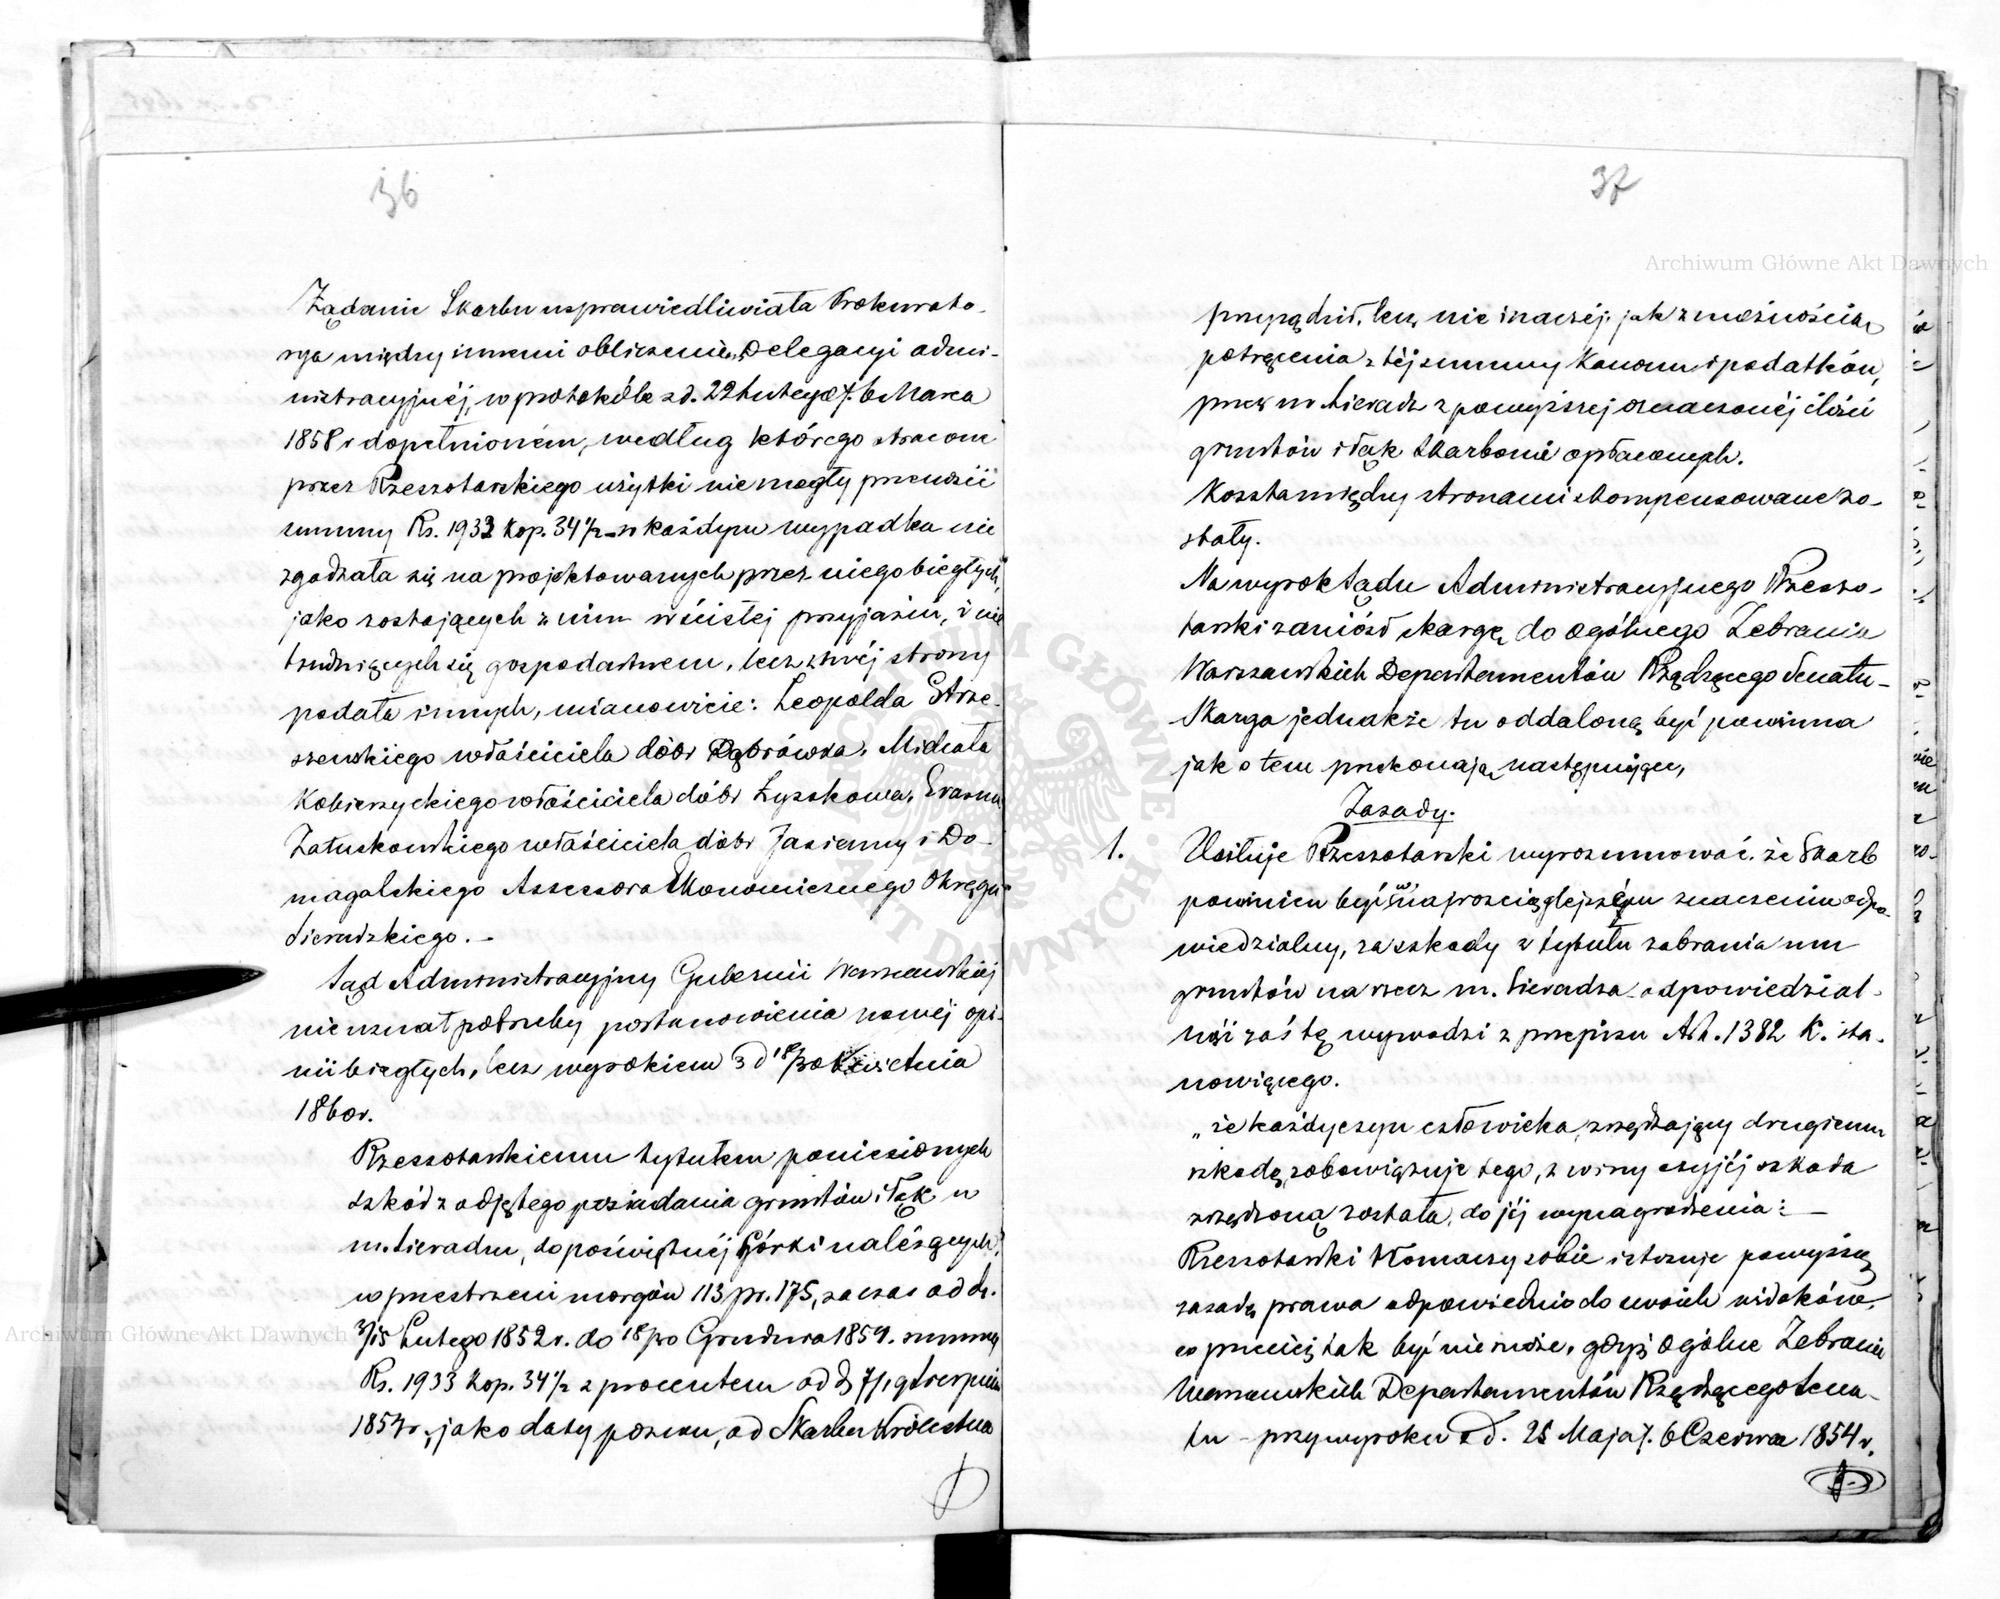 36
Żądanie Skarbu usprawiedliwiała Prokurato-
rya między innemi obliczeniem Delegacyi admi-
nistracyjnéj, w protokóle z d. 22 Lutego /. 6 Marca
1858 r dopełnioném, według którego stracone
przez Rzeszotarskiego użytki nie mogły przenosić
summy Rs. 1933 kop. 34 1/2 - w każdym wypadku nie
zgadzała się na projektowanych przez niego biegłych,
jako zostających z nim w ścisłej przyjaźni, i nie
trudniących się gospodarstwem, lecz z swéj strony
podała innych, mianowicie: Leopolda Strze-
szewskiego właściciela dóbr Dąbrówka, Michała
Kobierzyckiego właściciela dóbr Łyszkowa, Erazma
Załuskowskiego właściciela dóbr Jasienny i Do-
magalskiego Assessora Ekonomicznego Okręgu
Sieradzkiego. -
Sąd Administracyjny Gubernii Warszawskiej
nie uznał potrzeby postanowienia nowéj opi-
nii biegłych, lecz wyrokiem z d 18/30 Kwietnia
1860 r.
Rzeszotarskiemu tytułem poniesionych
szkód z odjętego posiadania gruntów i łąk w
m. Sieradzu, do poświętnéj Górki należących,
w przestrzeni morgów 113 pr. 175, za czas od d.
3/15 Lutego 1852 r. do 18/30 Grudnia 1859. summę
Rs. 1933 kop. 34 1/2 z procentem od d 7/19 Sierpnia
1857 r., jako daty pozwu, od Skarbu Królestwa
37
Archiwum Główne Akt Dawnych
przysądził, lecz nie inaczéj, jak z możnością
potrącenia z téj summy Kanonu i podatków,
przez m. Sieradz z powyższej oznaczonéj ilości
gruntów i łąk Skarbowi opłaconych.
Koszta między stronami skompensowane zo-
stały.
Na wyrok Sądu Administracyjnego Rzeszo-
tarski zaniósł skargę do Ogólnego Zebrania
Warszawskich Departamentów Rządzącego Senatu -
Skarga jednakże ta oddaloną być powinna
jak o tem przekonają następujące,
Zasady.
1. Usiłuje Rzeszotarski wyrozumować, że Skarb
powinien być w najrozciąglejszém znaczeniu odpo-
wiedzialny, za szkody z tytułu zabrania mu
gruntów na rzecz m. Sieradza - odpowiedzial-
ność zaś tę wywodzi z przepisu Art. 1382 K. sta-
nowiącego.
„że każdy czyn człowieka, zrządzający drugiemu
szkodę, zobowiązuje tego, z winy czyjéj szkoda
zrządzoną została, do jéj wynagrodzenia: -
Rzeszotarski tłomaczy sobie i stosuje powyższą
zasadę prawa odpowiednio do swoich widoków,
co przecież tak być nie może, gdyż Ogólne Zebranie
Warszawskich Departamentów Rządzącego Sena-
tu - przy wyroku z d. 25 Maja /. 6 Czerwca 1854 r.
Archiwum Główne Akt Dawnych
ARCHIWUM GŁÓWNE AKT DAWNYCH